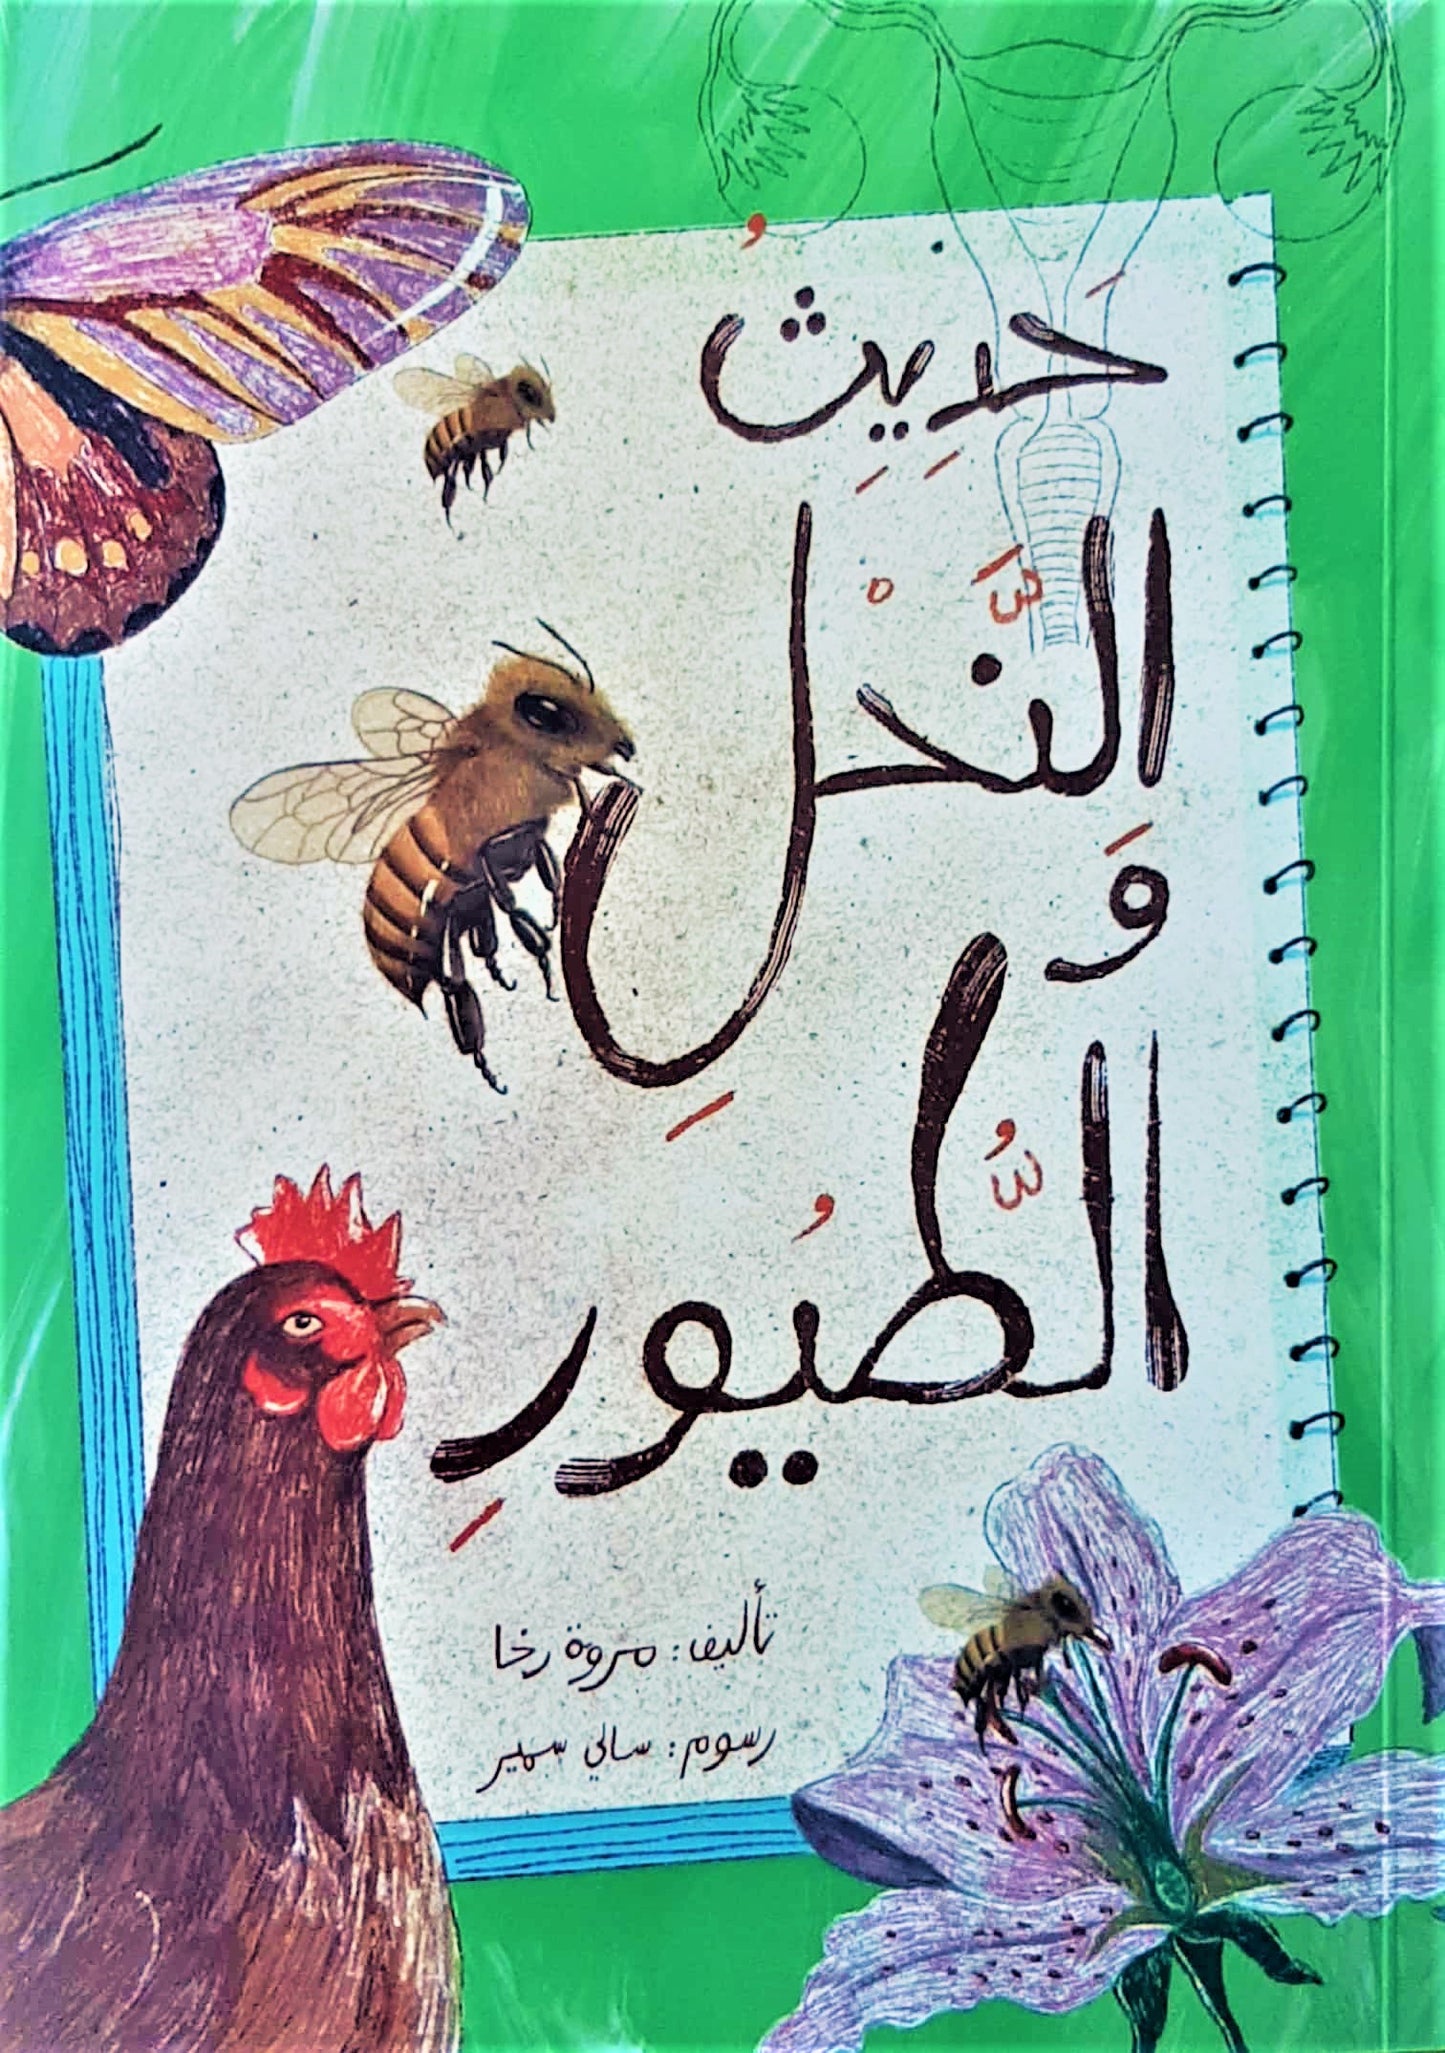 حَدِيثُ
النَّحْلِ
وَ
الطُّيُورِ
تأليف: مروة رخا
رسوم: سالي سمير